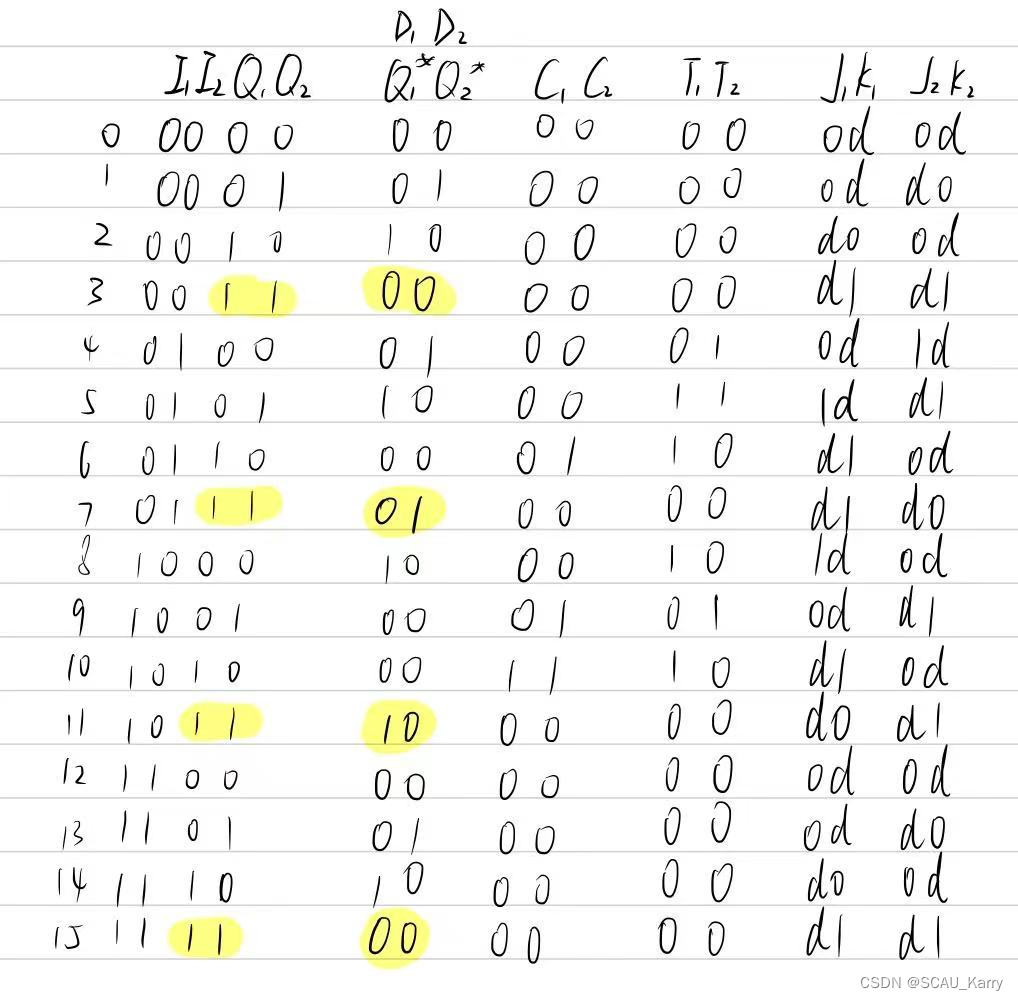 D₁ D₂
I₁ I₂ Q₁ Q₂ Q₁* Q₂* C₁ C₂ T₁ T₂ J₁ K₁ J₂ K₂
0 00 0 0 0 0 0 0 0 0 0d 0d
1 00 0 1 0 1 0 0 0 0 0d d0
2 00 1 0 1 0 0 0 0 0 d0 0d
3 00 1 1 0 0 0 0 0 0 d1 d1
4 01 0 0 0 1 0 0 0 1 0d 1d
5 01 0 1 1 0 0 0 1 1 1d d1
6 01 1 0 0 0 0 1 1 0 d1 0d
7 01 1 1 0 1 0 0 0 0 d1 d0
8 10 0 0 1 0 0 0 1 0 1d 0d
9 10 0 1 0 0 0 1 0 1 0d d1
10 10 1 0 0 0 1 1 1 0 d1 0d
11 10 1 1 1 0 0 0 0 0 d0 d1
12 11 0 0 0 0 0 0 0 0 0d 0d
13 11 0 1 0 1 0 0 0 0 0d d0
14 11 1 0 1 0 0 0 0 0 d0 0d
15 11 1 1 0 0 0 0 0 0 d1 d1
CSDN @SCAU_Karry